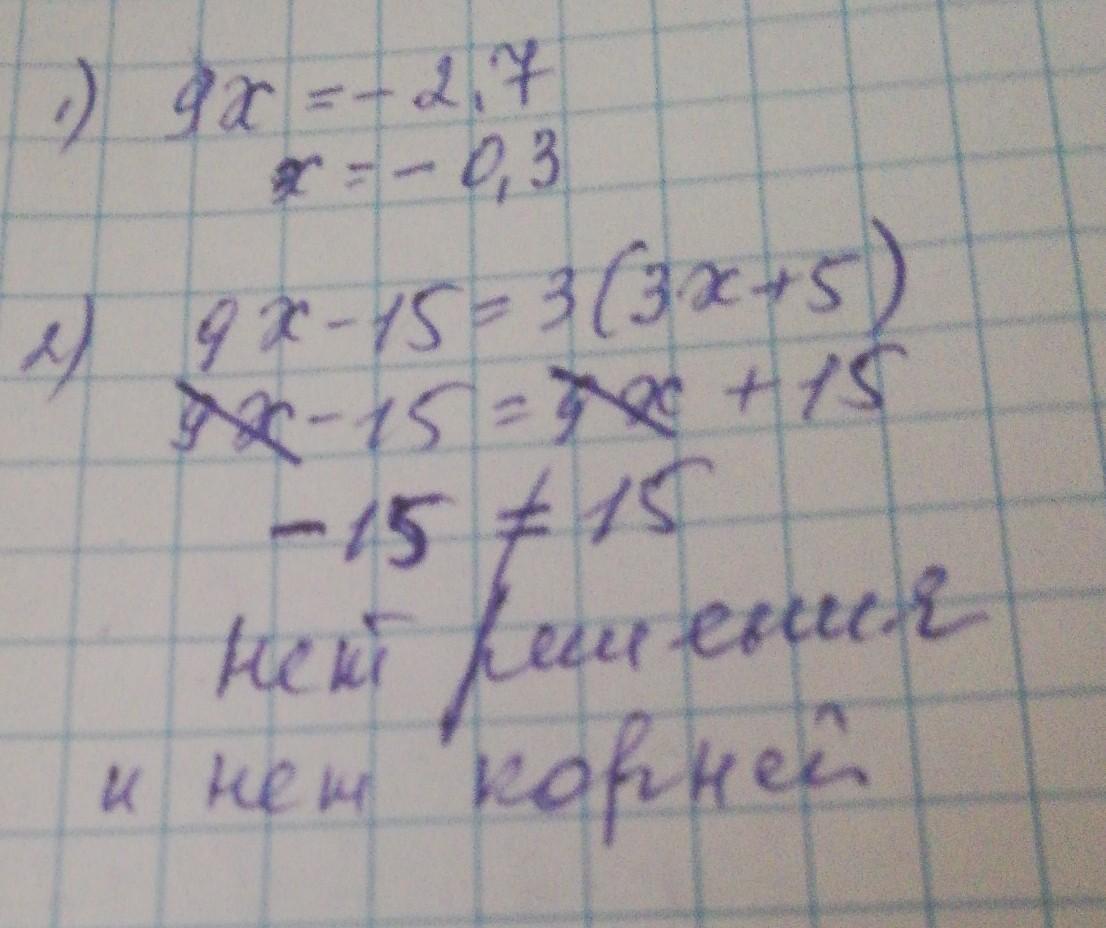 1) 9x = - 2,7
x = - 0,3
2) 9x - 15 = 3(3x + 5)
9x - 15 = 9x + 15
- 15 ≠ 15
нет решения
и нет корней